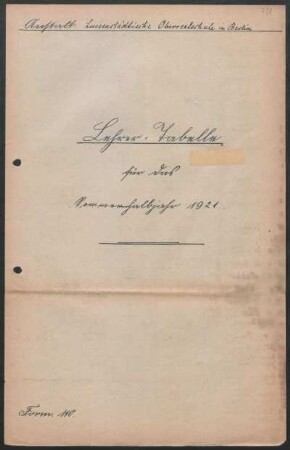 Anstalt: Luisenstädtische Oberrealschule in Berlin
Lehrer-Tabelle
für das
Sommerhalbjahr 1921.
Form. 140.